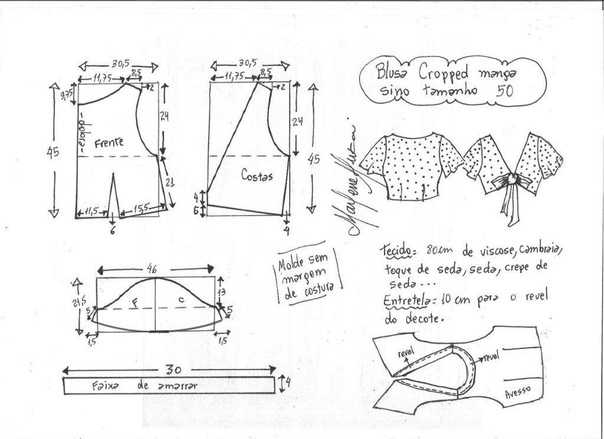 Blusa Cropped manga
sino tamanho 50
30,5
11,75
8,5
2
9,75
dobra
Frente
24
45
21
11,5
15,5
6
30,5
11,75
8,5
2
24
45
Costas
4
6
4
Marlene Mukai
Molde sem
margem
de costura
46
13
21,5
F
C
5
5
1,5
1,5
30
Faixa de amarrar
4
Tecido: 80cm de viscose, cambraia,
toque de seda, seda, crepe de
seda...
Entretela: 10 cm para o revel
do decote.
revel
revel
Avesso